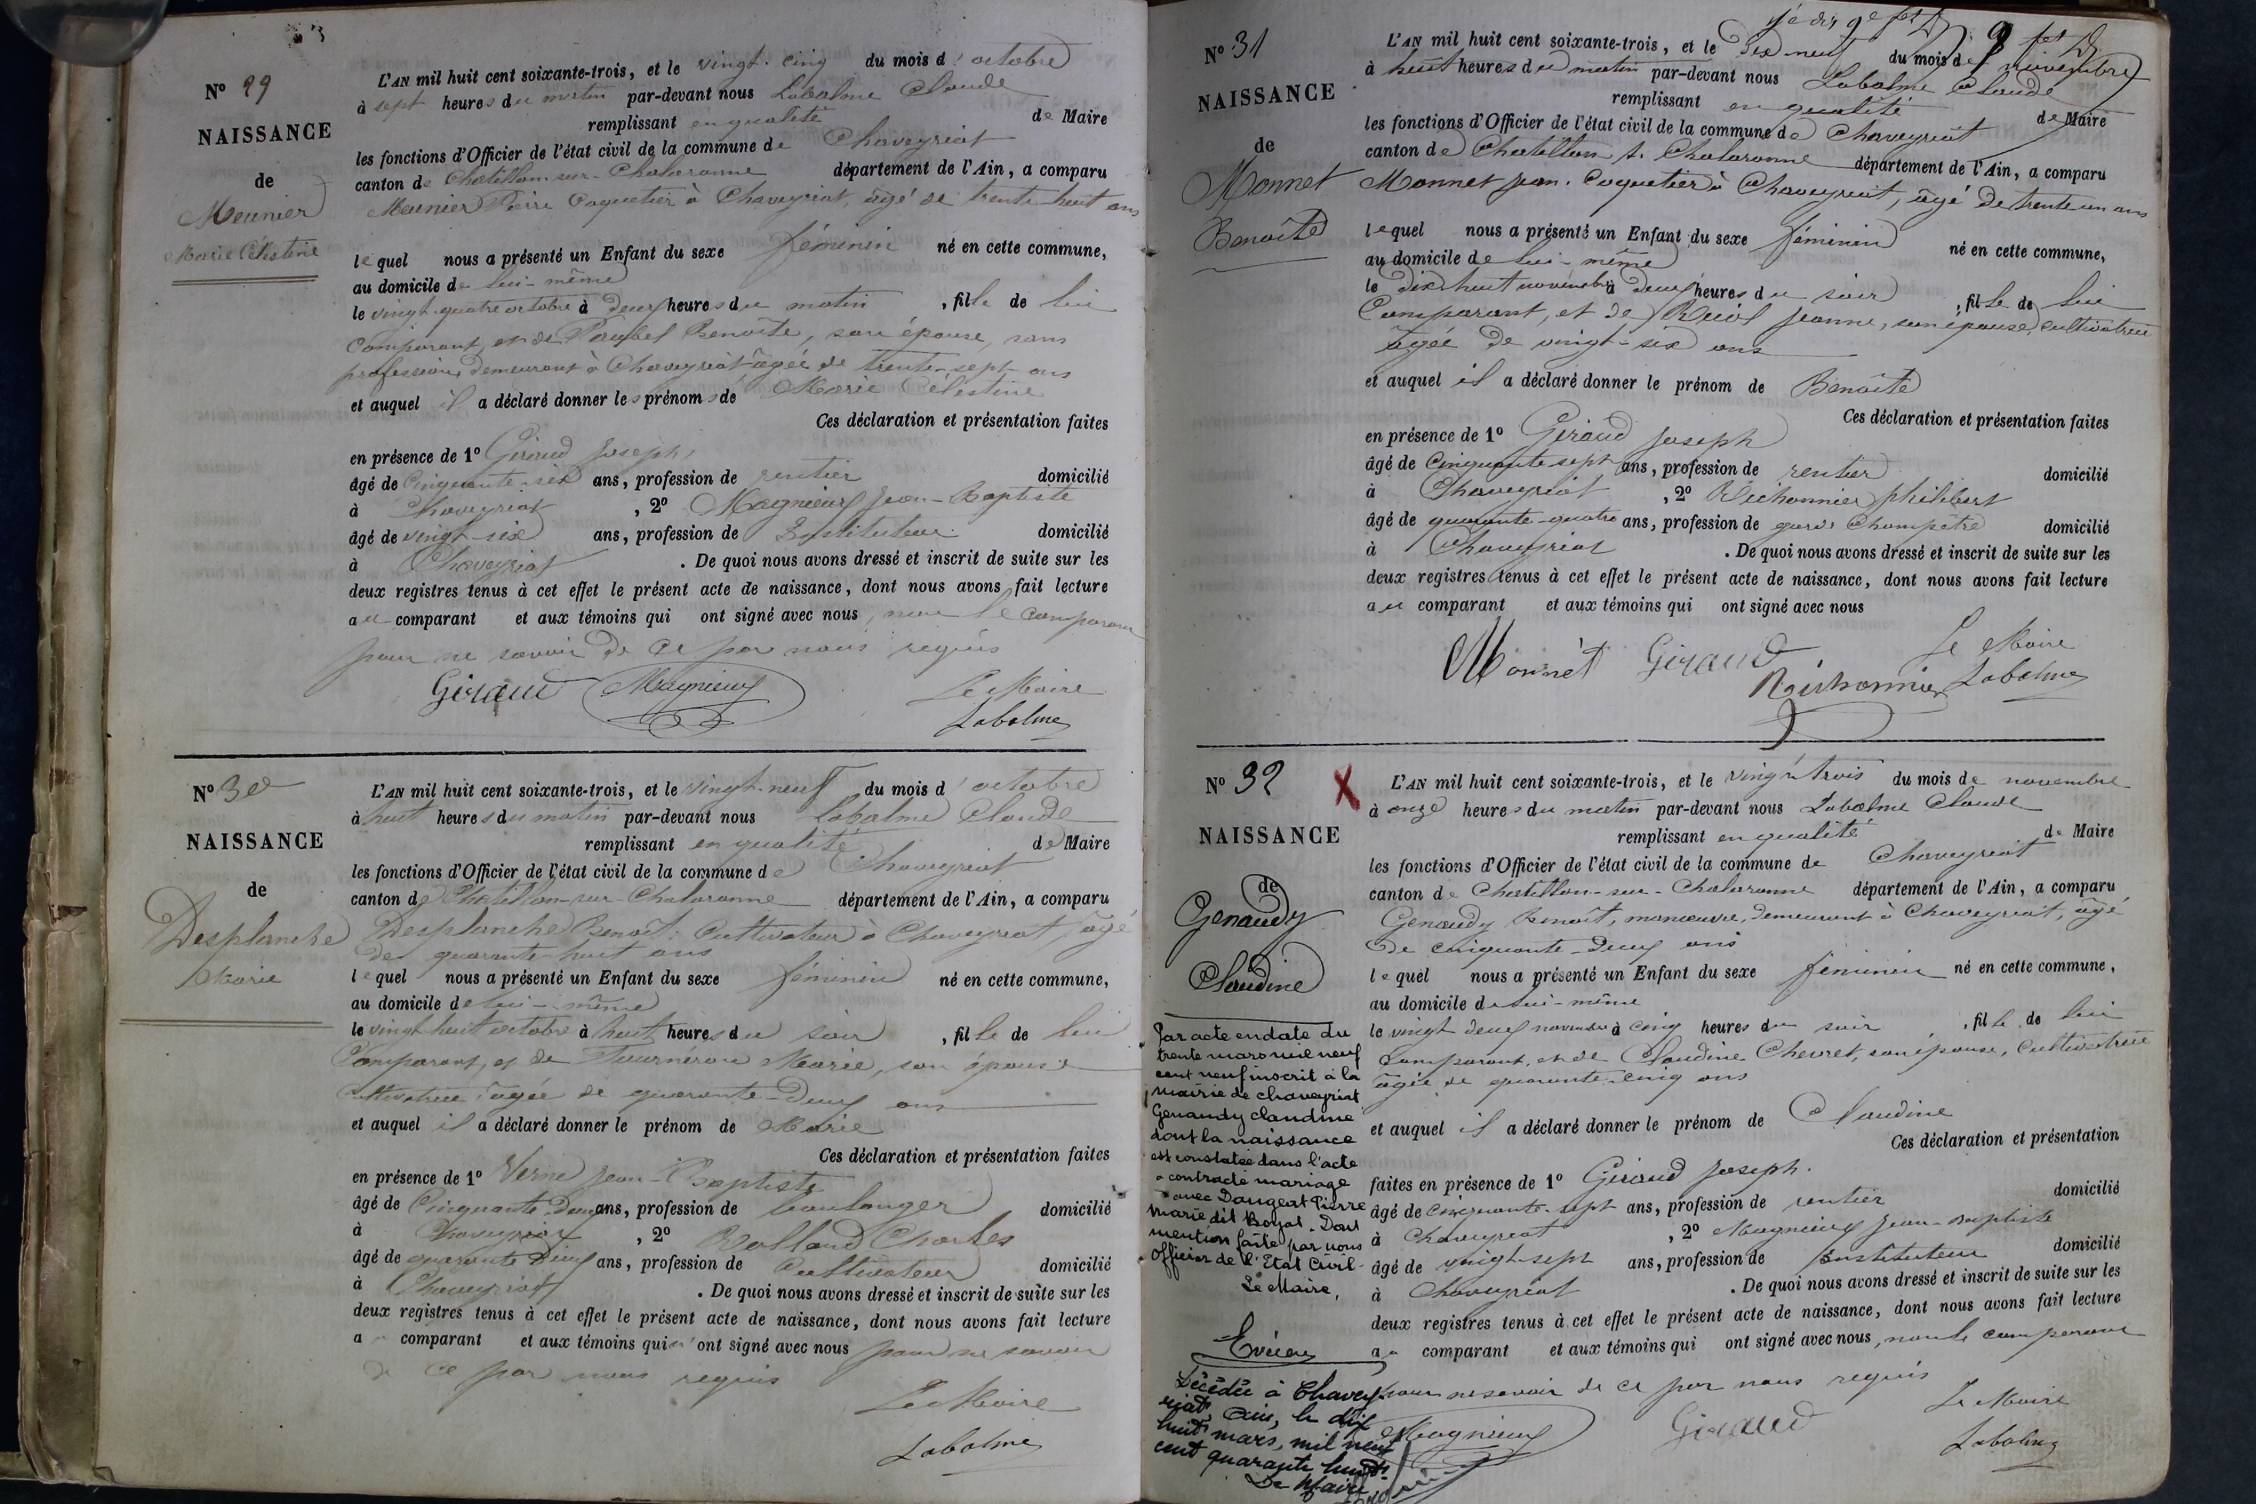 Nº 29
NAISSANCE
de
Meunier
Marie Célestine
L'AN mil huit cent soixante-trois, et le vingt-cinq du mois d'octobre
à sept heures du matin par-devant nous Labalme Claude
remplissant en qualité de Maire
les fonctions d'Officier de l'état civil de la commune de Chaveyriat
canton de Chatillon-sur-Chalaronne département de l'Ain, a comparu
Meunier Pierre Coquetier à Chaveyriat, âgé de trente-huit ans
lequel nous a présenté un Enfant du sexe féminin né en cette commune,
au domicile de lui-même
le vingt-quatre octobre à deux heures du matin, fille de lui
Comparant, et de Benoîte, son épouse, sans
profession, demeurant à Chaveyriat âgée de trente-sept ans
et auquel il a déclaré donner les prénoms de Marie Célestine
Ces déclaration et présentation faites
en présence de 1º Giraud Joseph,
âgé de Cinquante-six ans, profession de rentier domicilié
à Chaveyriat, 2º Magnieux Jean-Baptiste
âgé de vingt-six ans, profession de Instituteur domicilié
à Chaveyriat. De quoi nous avons dressé et inscrit de suite sur les
deux registres tenus à cet effet le présent acte de naissance, dont nous avons fait lecture
au comparant et aux témoins qui ont signé avec nous, non le comparant
pour ne savoir de ce par nous requis
Giraud Magnieux Le Maire
Labalme
Nº 30
NAISSANCE
de
Desplanche
Marie
L'AN mil huit cent soixante-trois, et le vingt-neuf du mois d'octobre
à huit heures du matin par-devant nous Labalme Claude
remplissant en qualité de Maire
les fonctions d'Officier de l'état civil de la commune de Chaveyriat
canton de Chatillon-sur-Chalaronne département de l'Ain, a comparu
Desplanche Benoît, Cultivateur à Chaveyriat, âgé
de quarante-huit ans
lequel nous a présenté un Enfant du sexe féminin né en cette commune,
au domicile de lui-même
le vingt-huit octobre à huit heures du soir, fille de lui
Comparant, et de Marie, son épouse
cultivatrice âgée de quarante-deux ans
et auquel il a déclaré donner le prénom de Marie
Ces déclaration et présentation faites
en présence de 1º Verne Jean-Baptiste
âgé de Cinquante-deux ans, profession de boulanger domicilié
à Chaveyriat, 2º Rolland Charles
âgé de quarante deux ans, profession de Cultivateur domicilié
à Chaveyriat. De quoi nous avons dressé et inscrit de suite sur les
deux registres tenus à cet effet le présent acte de naissance, dont nous avons fait lecture
a comparant et aux témoins qui n'ont signé avec nous pour ne savoir
de ce par nous requis
Le Maire
Labalme
Nº 31
NAISSANCE
de
Monnet
Benoîte
L'AN mil huit cent soixante-trois, et le dix neuf du mois de novembre
à huit heures du matin par-devant nous Labalme Claude
remplissant en qualité de Maire
les fonctions d'Officier de l'état civil de la commune de Chaveyriat
canton de Chatillon s. Chalaronne département de l'Ain, a comparu
Monnet Jean. Coquetier à Chaveyriat, âgé de trente un ans
lequel nous a présenté un Enfant du sexe féminin né en cette commune,
au domicile de lui-même
le dix huit novembre à deux heures du soir, fille de lui
Comparant, et de Jeanne, son épouse, cultivatrice
âgée de vingt-six ans
et auquel il a déclaré donner le prénom de Benoîte
Ces déclaration et présentation faites
en présence de 1º Giraud Joseph
âgé de Cinquante sept ans, profession de rentier domicilié
à Chaveyriat, 2º Richonnier philibert
âgé de quarante-quatre ans, profession de garde Champêtre domicilié
à Chaveyriat. De quoi nous avons dressé et inscrit de suite sur les
deux registres tenus à cet effet le présent acte de naissance, dont nous avons fait lecture
au comparant et aux témoins qui ont signé avec nous
Monnet Giraud Le Maire
Richonnier Labalme
Nº 32 X
NAISSANCE
de
Genaudy
Claudine
Par acte en date du
trente mars mil neuf
cent neuf inscrit à la
mairie de Chaveyriat
Genaudy Claudine
dont la naissance
est constatée dans l'acte
a contracté mariage
avec Dangeat Pierre
Marie dit Boyat. Dont
mention faite par nous
Officier de l'Etat Civil.
Le Maire,
Décédée à Chavey
riat, Ain, le dix
huit mars, mil neuf
cent quarante huit.
Le Maire
L'AN mil huit cent soixante-trois, et le vingt trois du mois de novembre
à onze heures du matin par-devant nous Labalme Claude
remplissant en qualité de Maire
les fonctions d'Officier de l'état civil de la commune de Chaveyriat
canton de Chatillon-sur-Chalaronne département de l'Ain, a comparu
Genaudy Benoît, manœuvre, demeurant à Chaveyriat, âgé
de cinquante-deux ans
lequel nous a présenté un Enfant du sexe féminin né en cette commune,
au domicile de lui-même
le vingt deux novembre à cinq heures du soir, fille de lui
Comparant, et de Claudine Chevret, son épouse, Cultivatrice
âgée de quarante-cinq ans
et auquel il a déclaré donner le prénom de Claudine
Ces déclaration et présentation
faites en présence de 1º Giraud Joseph.
âgé de cinquante-sept ans, profession de rentier domicilié
à Chaveyriat, 2º Magnieux Jean-Baptiste
âgé de vingt-sept ans, profession de Instituteur domicilié
à Chaveyriat. De quoi nous avons dressé et inscrit de suite sur les
deux registres tenus à cet effet le présent acte de naissance, dont nous avons fait lecture
au comparant et aux témoins qui ont signé avec nous, non le comparant
pour ne savoir de ce par nous requis
Magnieux Giraud Le Maire
Labalme